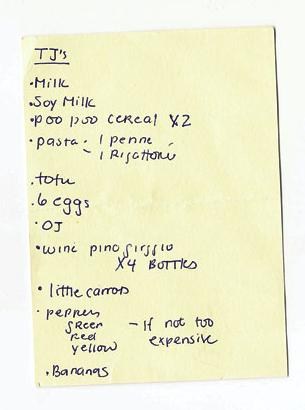 TJ's
• Milk
• Soy Milk
• poo poo cereal X2
• pasta - 1 penne
- 1 Rigattoni
• tofu
• 6 eggs
• OJ
• wine pino griggio
X4 BOTTles
• little carrots
• peppers
green - If not too
Red expensive
yellow
• Bananas